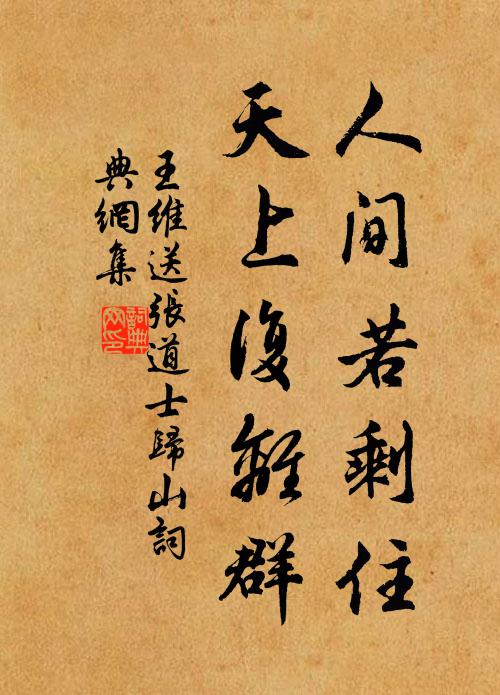 人間若剩住
天上復離群
王維送張道士歸山詞
典網集
詞典
网印